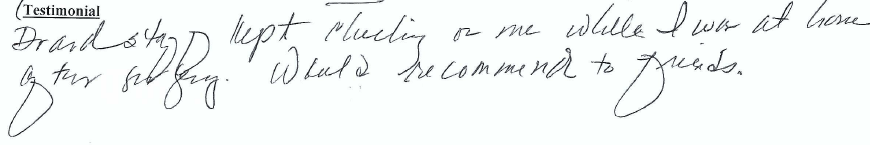 (Testimonial
Dr and staff kept checking on me while I was at home
after surgery. Would recommend to friends.